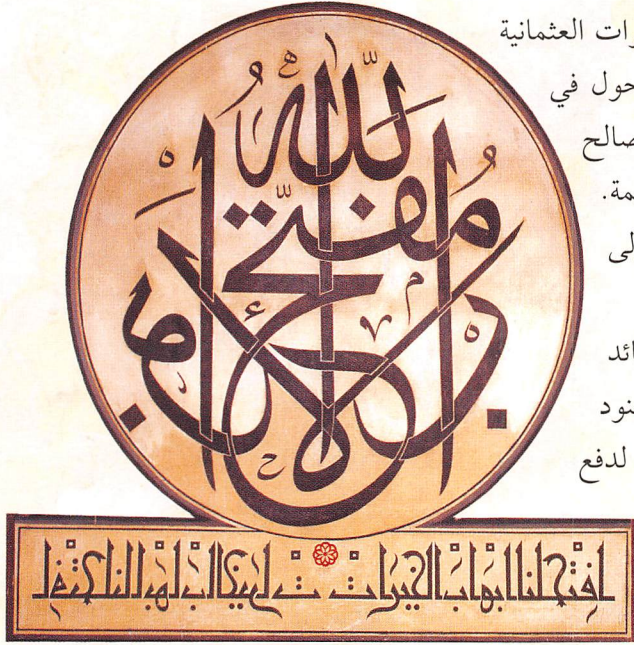 رات العثمانية
حول في
صالح
مة.
لى
ائد
نود
لدفع
الله
مفتح
الأبواب
افتح لنا ابواب الخيرات